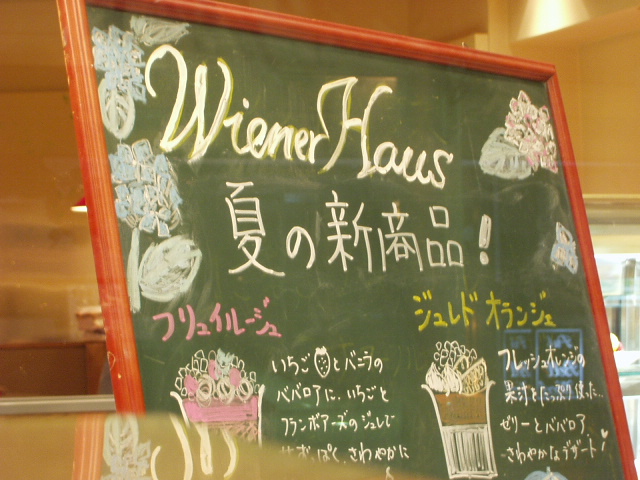 Wiener Haus
夏の新商品!
フリュイルージュ
いちごとバニラの
ババロアに、いちごと
フランボアーズのジュレで
甘ずっぱく、さわやかに
ジュレド オランジェ
フレッシュオレンジの
果汁をたっぷり使った…
ゼリーとババロア
さわやかなデザート!